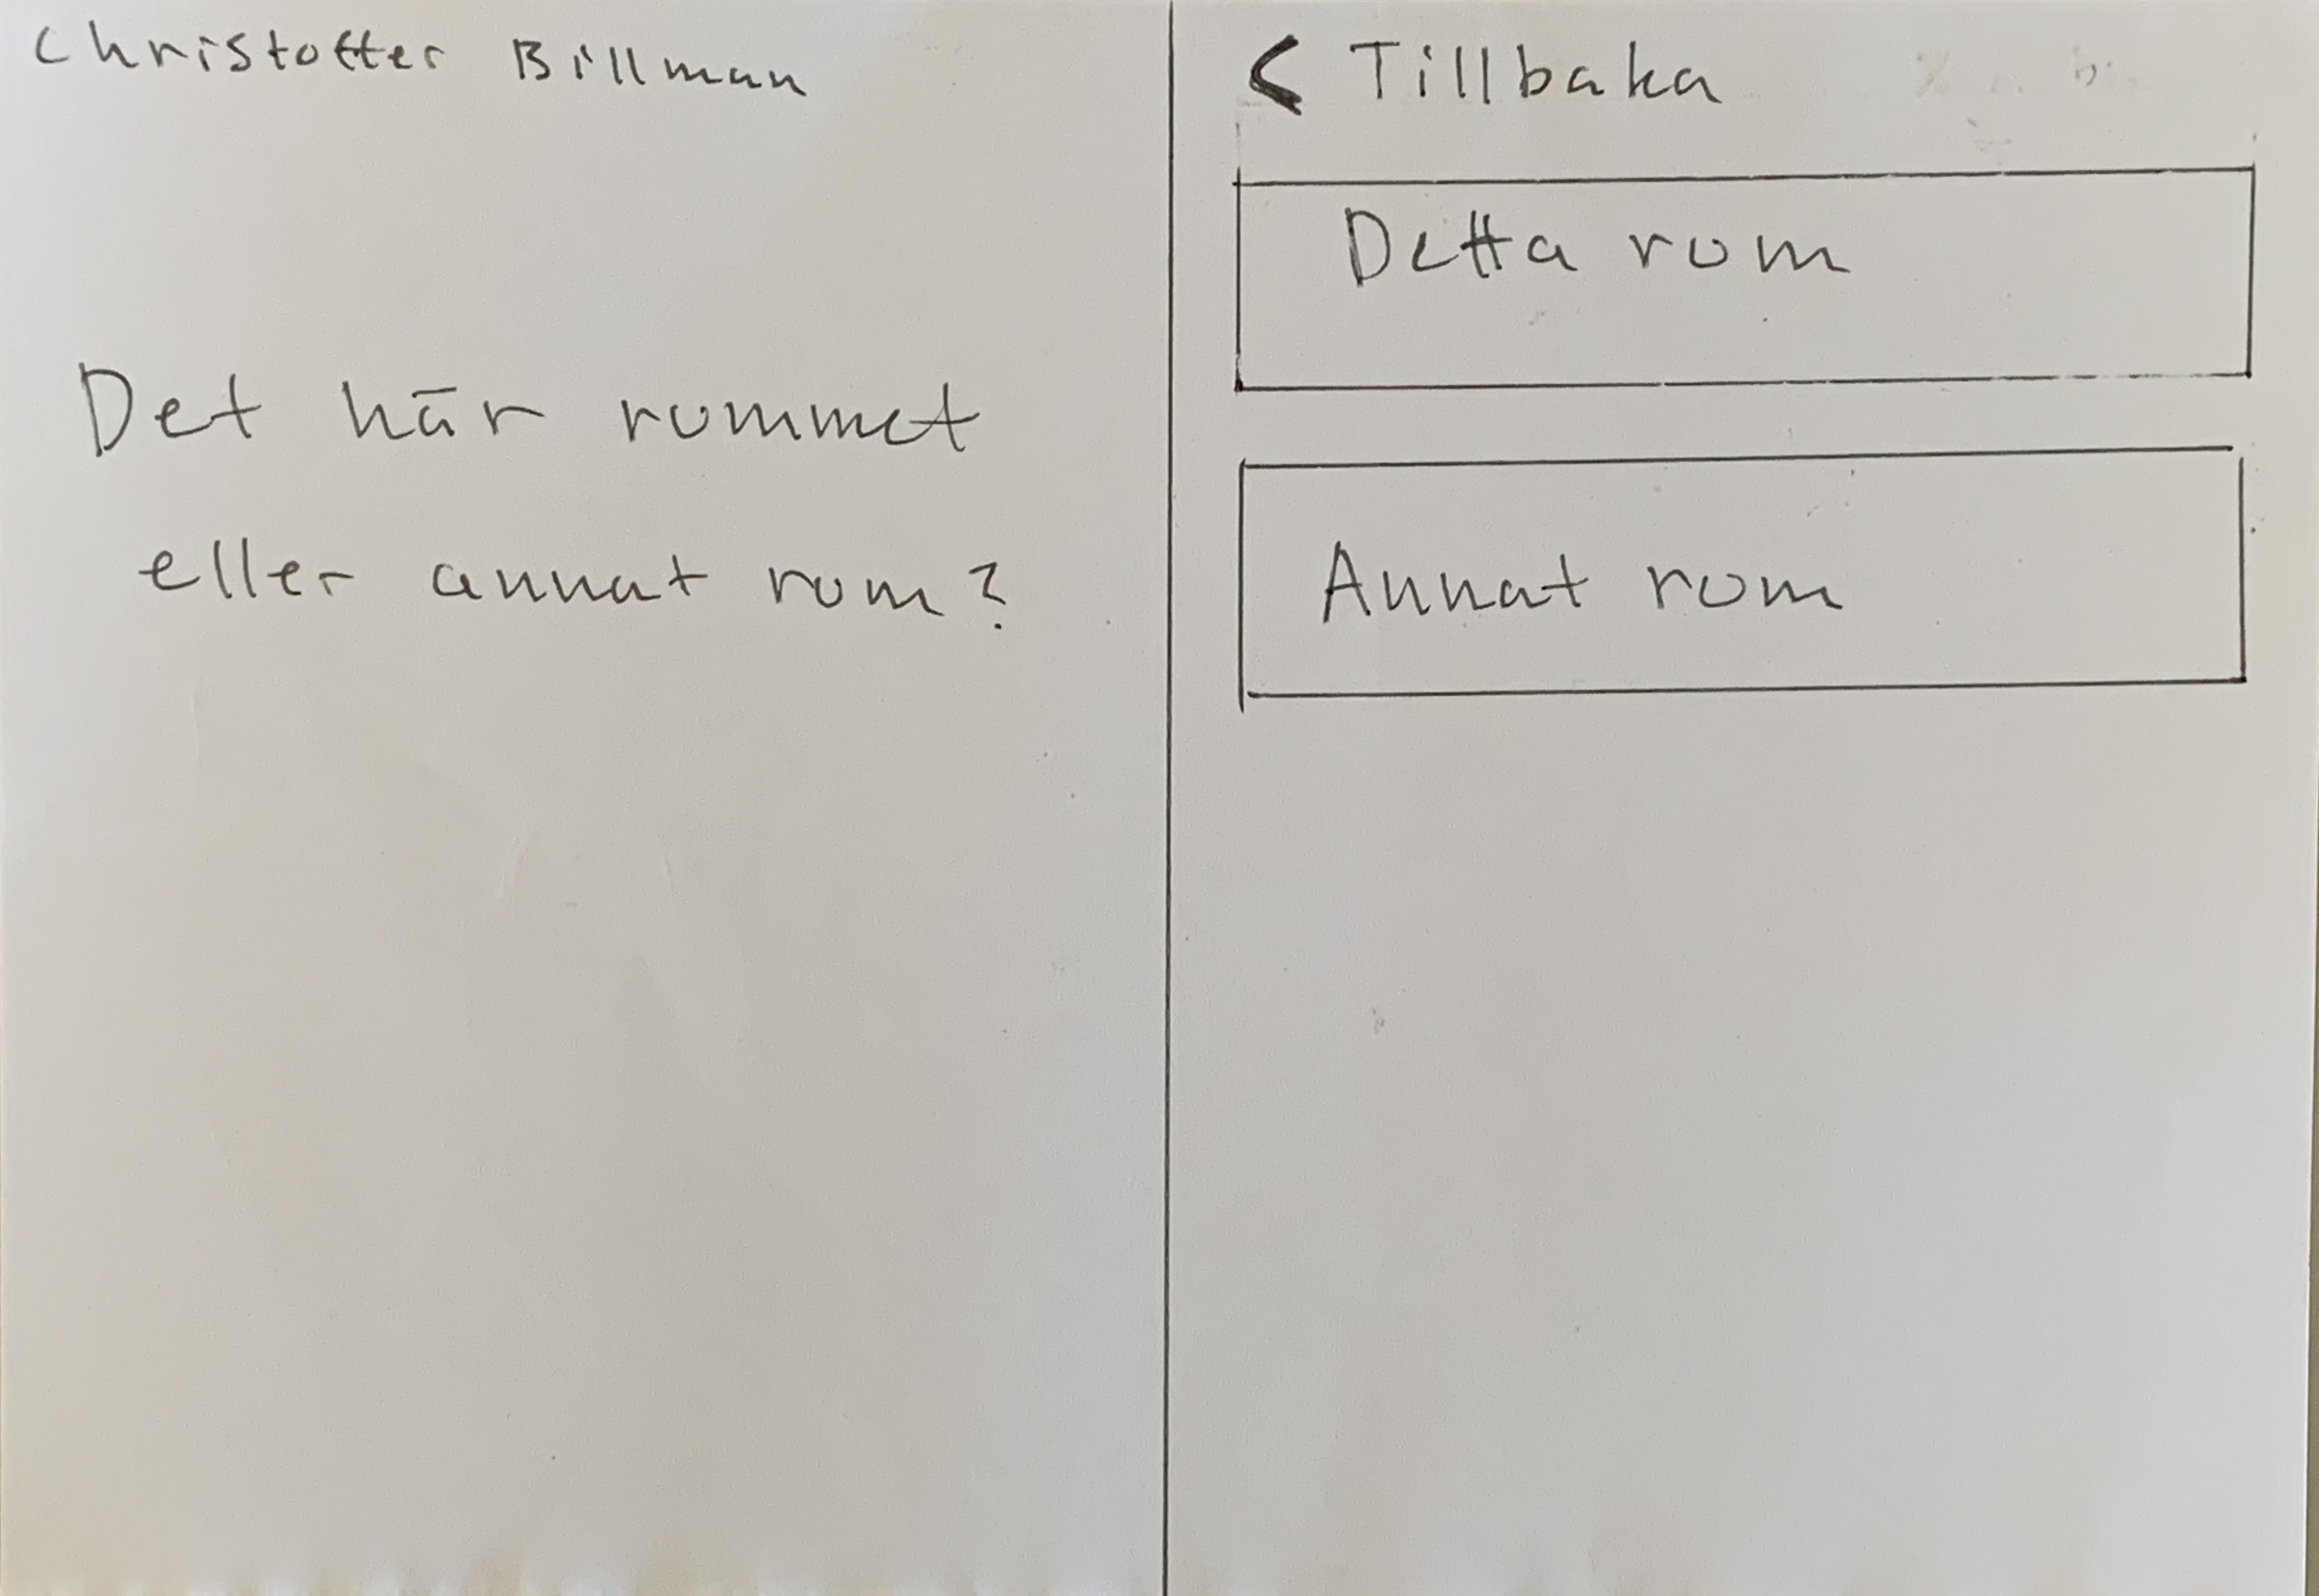 Christoffer Billman
Det här rummet
eller annat rum?
< Tillbaka
Detta rum
Annat rum